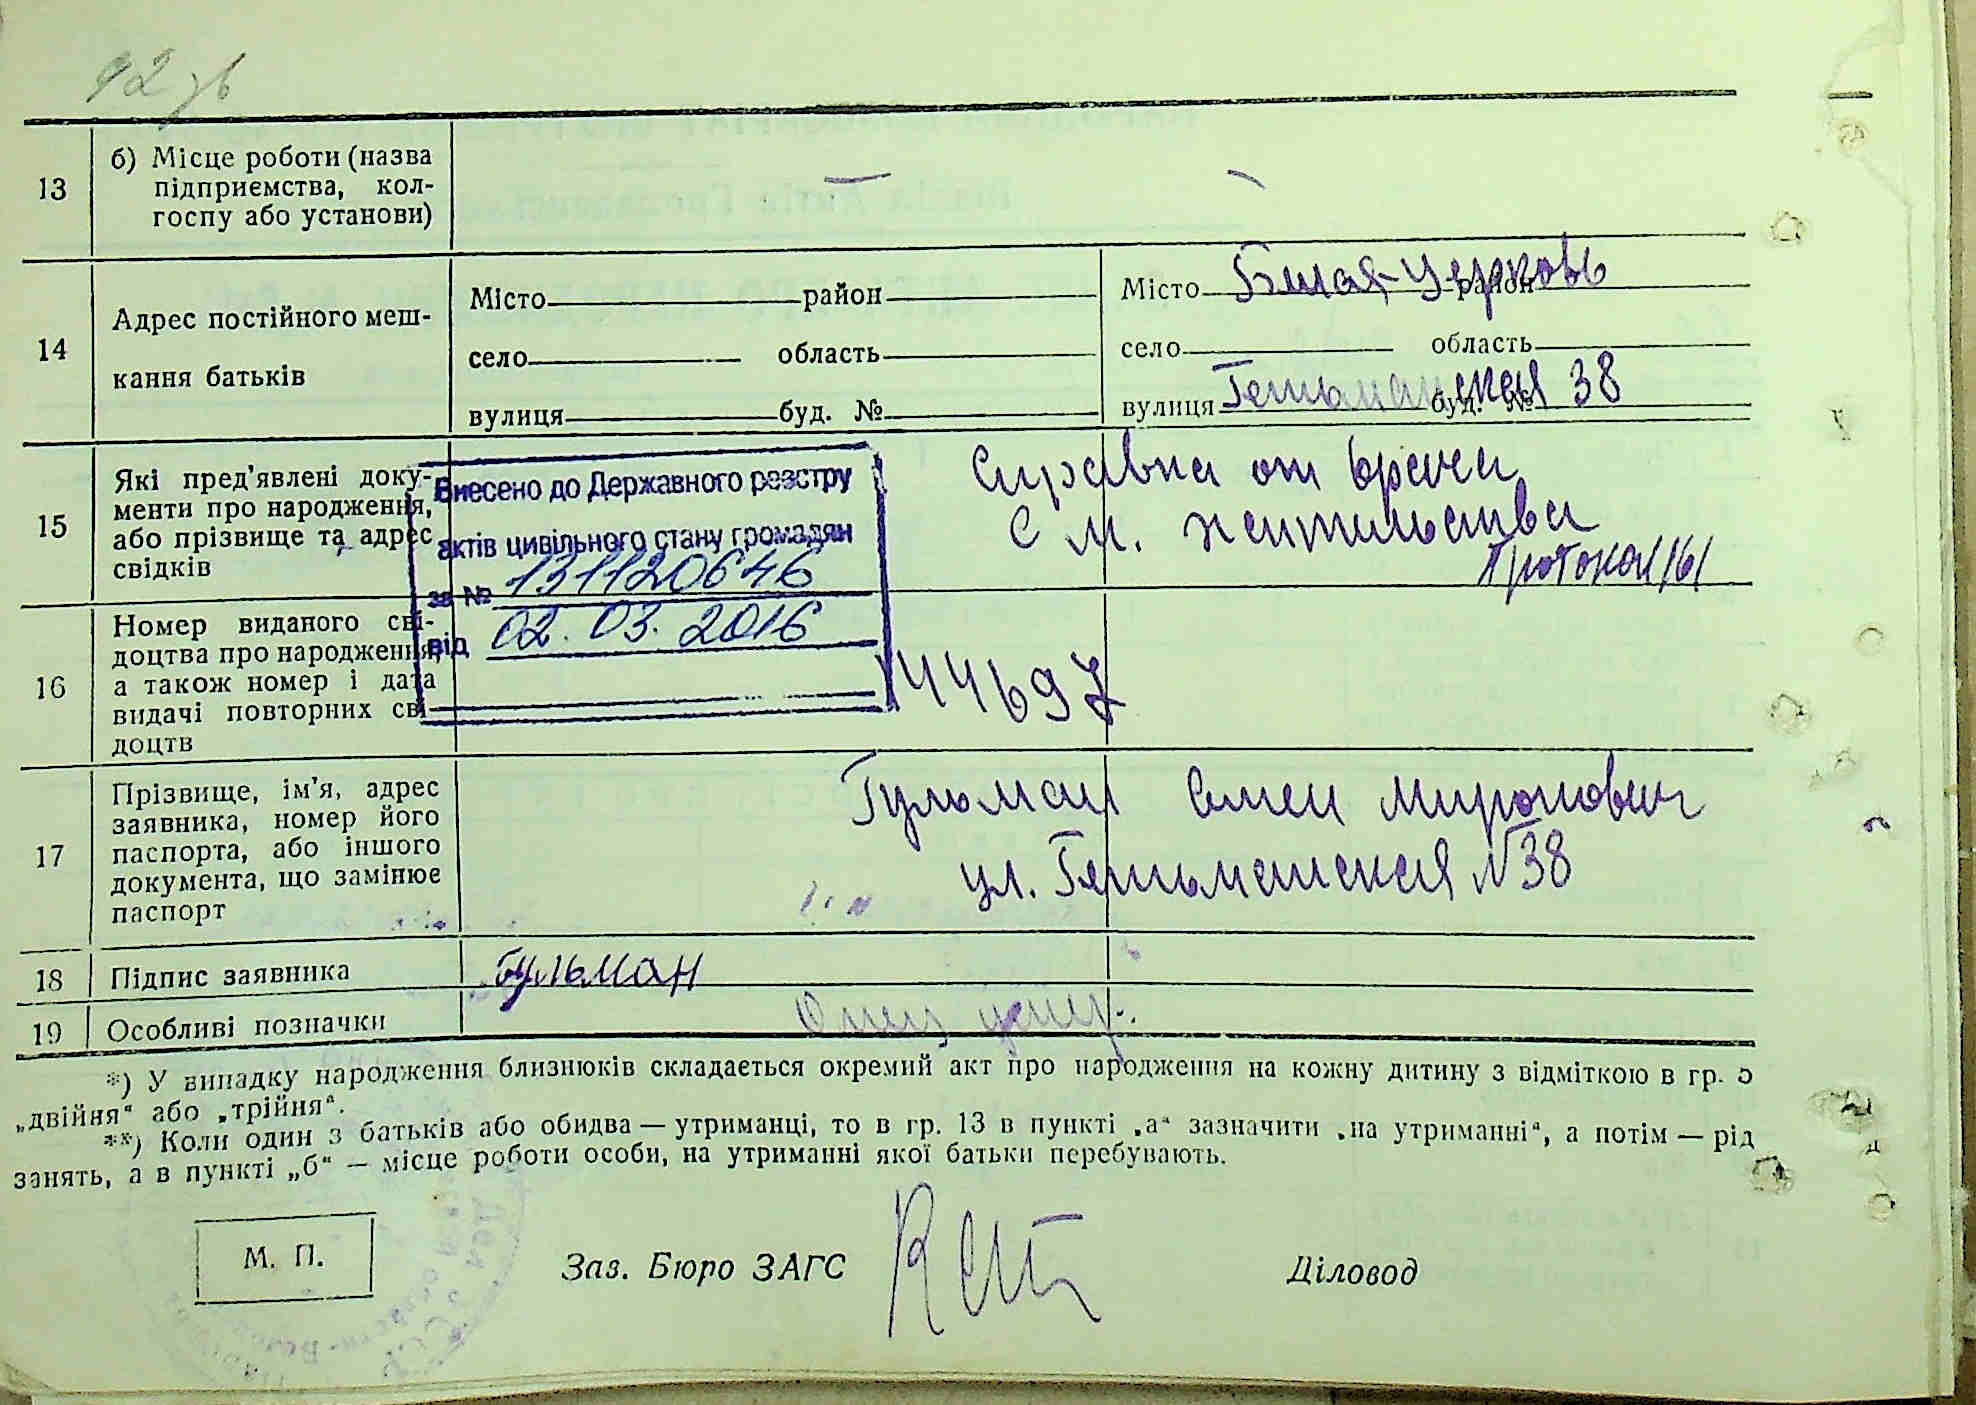 92 зв
13
б) Місце роботи (назва
підприємства, кол-
госпу або установи)
—
—
14
Адрес постійного меш-
кання батьків
Місто район
село область
вулиця буд. №
Місто Белая-Церковь район
село область
вулиця Гетьманская 38 буд. №
15
Які пред'явлені доку-
менти про народження,
або прізвище та адрес
свідків
Внесено до Державного реєстру
актів цивільного стану громадян
за № 131120646
від 02. 03. 2016
Справка от врача
С м. жительства
Протокол 161
16
Номер виданого сві-
доцтва про народження,
а також номер і дата
видачі повторних сві-
доцтв
144697
17
Прізвище, ім'я, адрес
заявника, номер його
паспорта, або іншого
документа, що замінює
паспорт
Гульман Семен Миронович
ул. Гетьманская №38
18
Підпис заявника
Гульман
19
Особливі позначки
Отец умер.
*) У випадку народження близнюків складається окремий акт про народження на кожну дитину з відміткою в гр. 5
„двійня“ або „трійня“.
**) Коли один з батьків або обидва — утриманці, то в гр. 13 в пункті „а“ зазначити „на утриманні“, а потім — рід
занять, а в пункті „б“ — місце роботи особи, на утриманні якої батьки перебувають.
М. П.
Зав. Бюро ЗАГС
Діловод